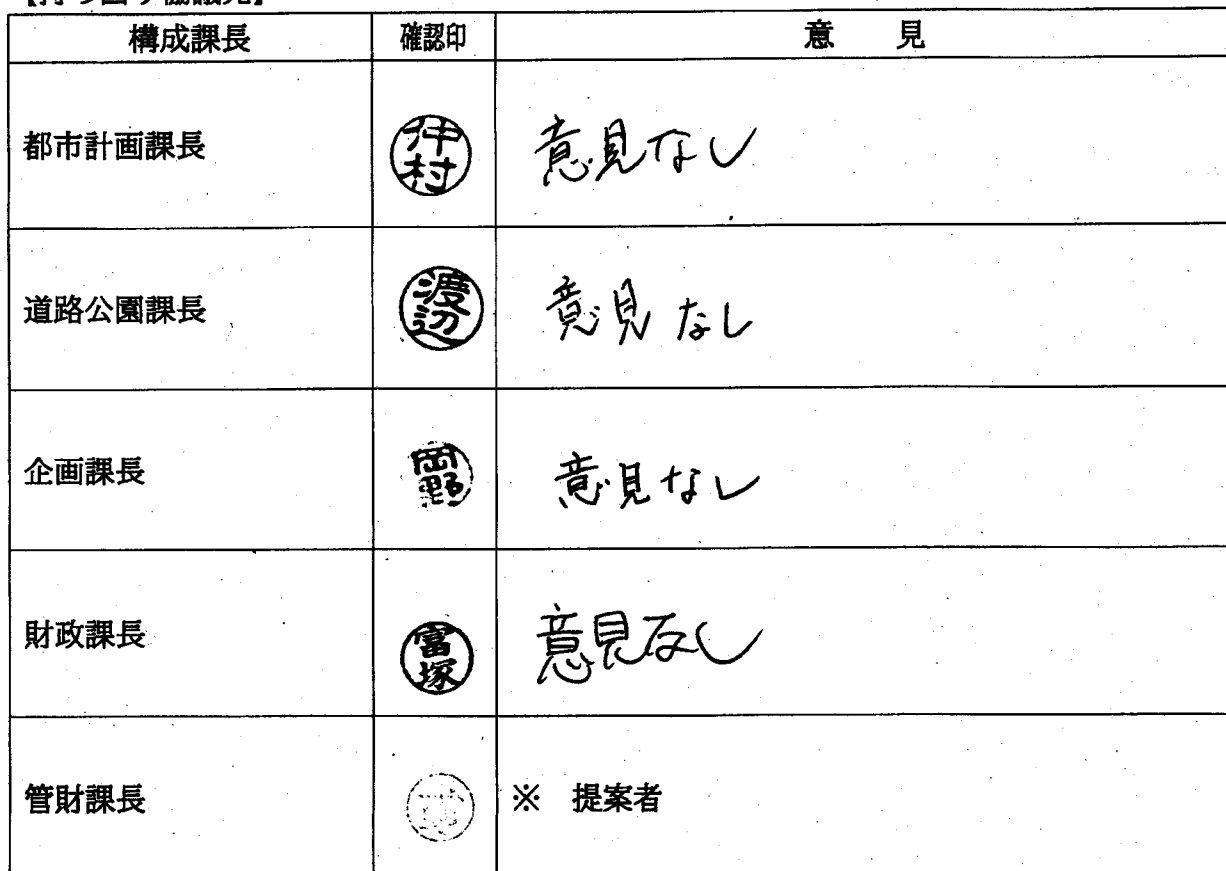 【持ち回り協議先】
構成課長 確認印 意 見
都市計画課長 仲村 意見なし
道路公園課長 渡辺 意見なし
企画課長 岡野 意見なし
財政課長 富塚 意見なし
管財課長 ※ 提案者